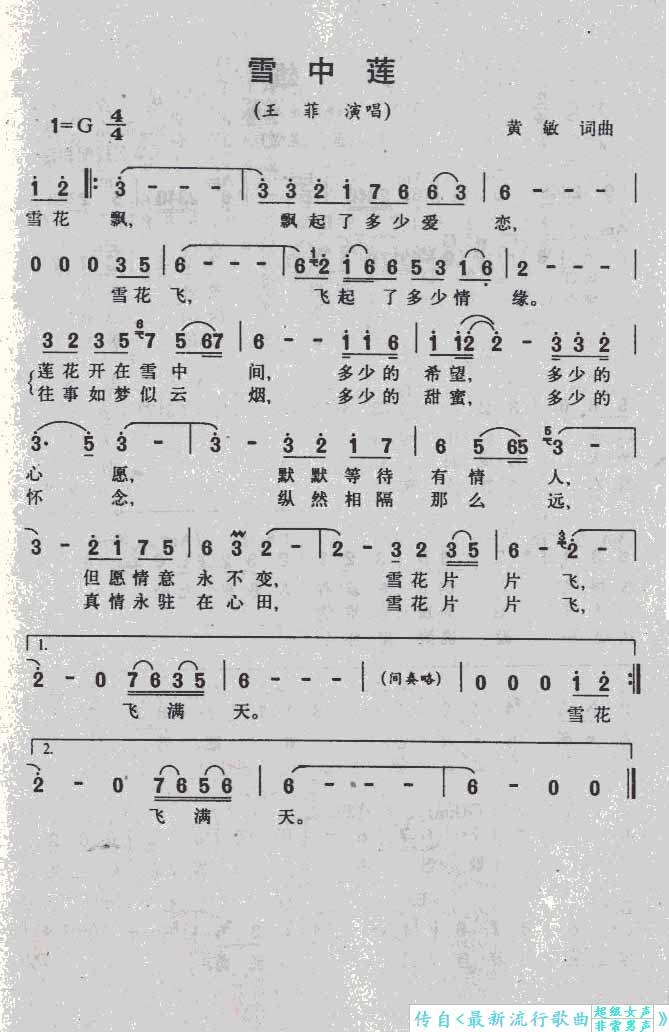 雪中莲
(王菲 演唱)
1=G 4/4
黄敏 词曲
1 2 ‖: 3 - - - | 3 3 2 1 7 6 6 3 | 6 - - - |
雪花 飘, 飘起了多少爱 恋,
0 0 0 3 5 | 6 - - - | 6 1 2 1 6 6 5 3 1 6 | 2 - - - |
雪花 飞, 飞起 了多少情 缘。
3 2 3 5 6 7 5 67 | 6 - - 1 1 6 | 1 12 2 - 3 3 2 |
莲花开在雪中 间, 多少的 希望, 多少的
往事如梦似云 烟, 多少的 甜蜜, 多少的
3· 5 3 - | 3 - 3 2 1 7 | 6 5 65 5 3 - |
心 愿, 默默等待 有情 人,
怀 念, 纵然相隔 那么 远,
3 - 2 1 7 5 | 6 3 2 - | 2 - 3 2 3 5 | 6 - 3 2 - |
但愿情意 永不变, 雪花片 片 飞,
真情永驻 在心田, 雪花片 片 飞,
1.
2 - 0 7 6 3 5 | 6 - - - | (间奏略) | 0 0 0 1 2 :‖
飞 满 天。 雪花
2.
2 - 0 7 6 5 6 | 6 - - - | 6 - 0 0 ‖
飞 满 天。
传自<最新流行歌曲 超级女声 非常男声》